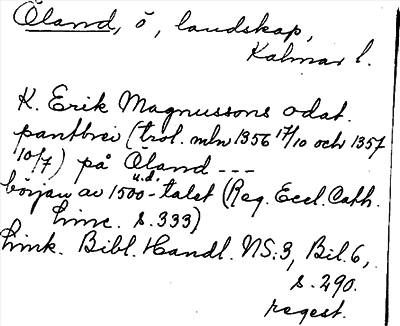 Öland, ö, landskap,
Kalmar l.
K. Erik Magnussons odat.
pantbrev (trol. mln 1356 17/10 och 1357
10/7) på Öland ---
u.d.
början av 1500-talet (Reg. Eccl. Cath.
Linc. s. 333)
Link. Bibl. Handl. NS:3, Bil. 6,
s. 290.
regest.